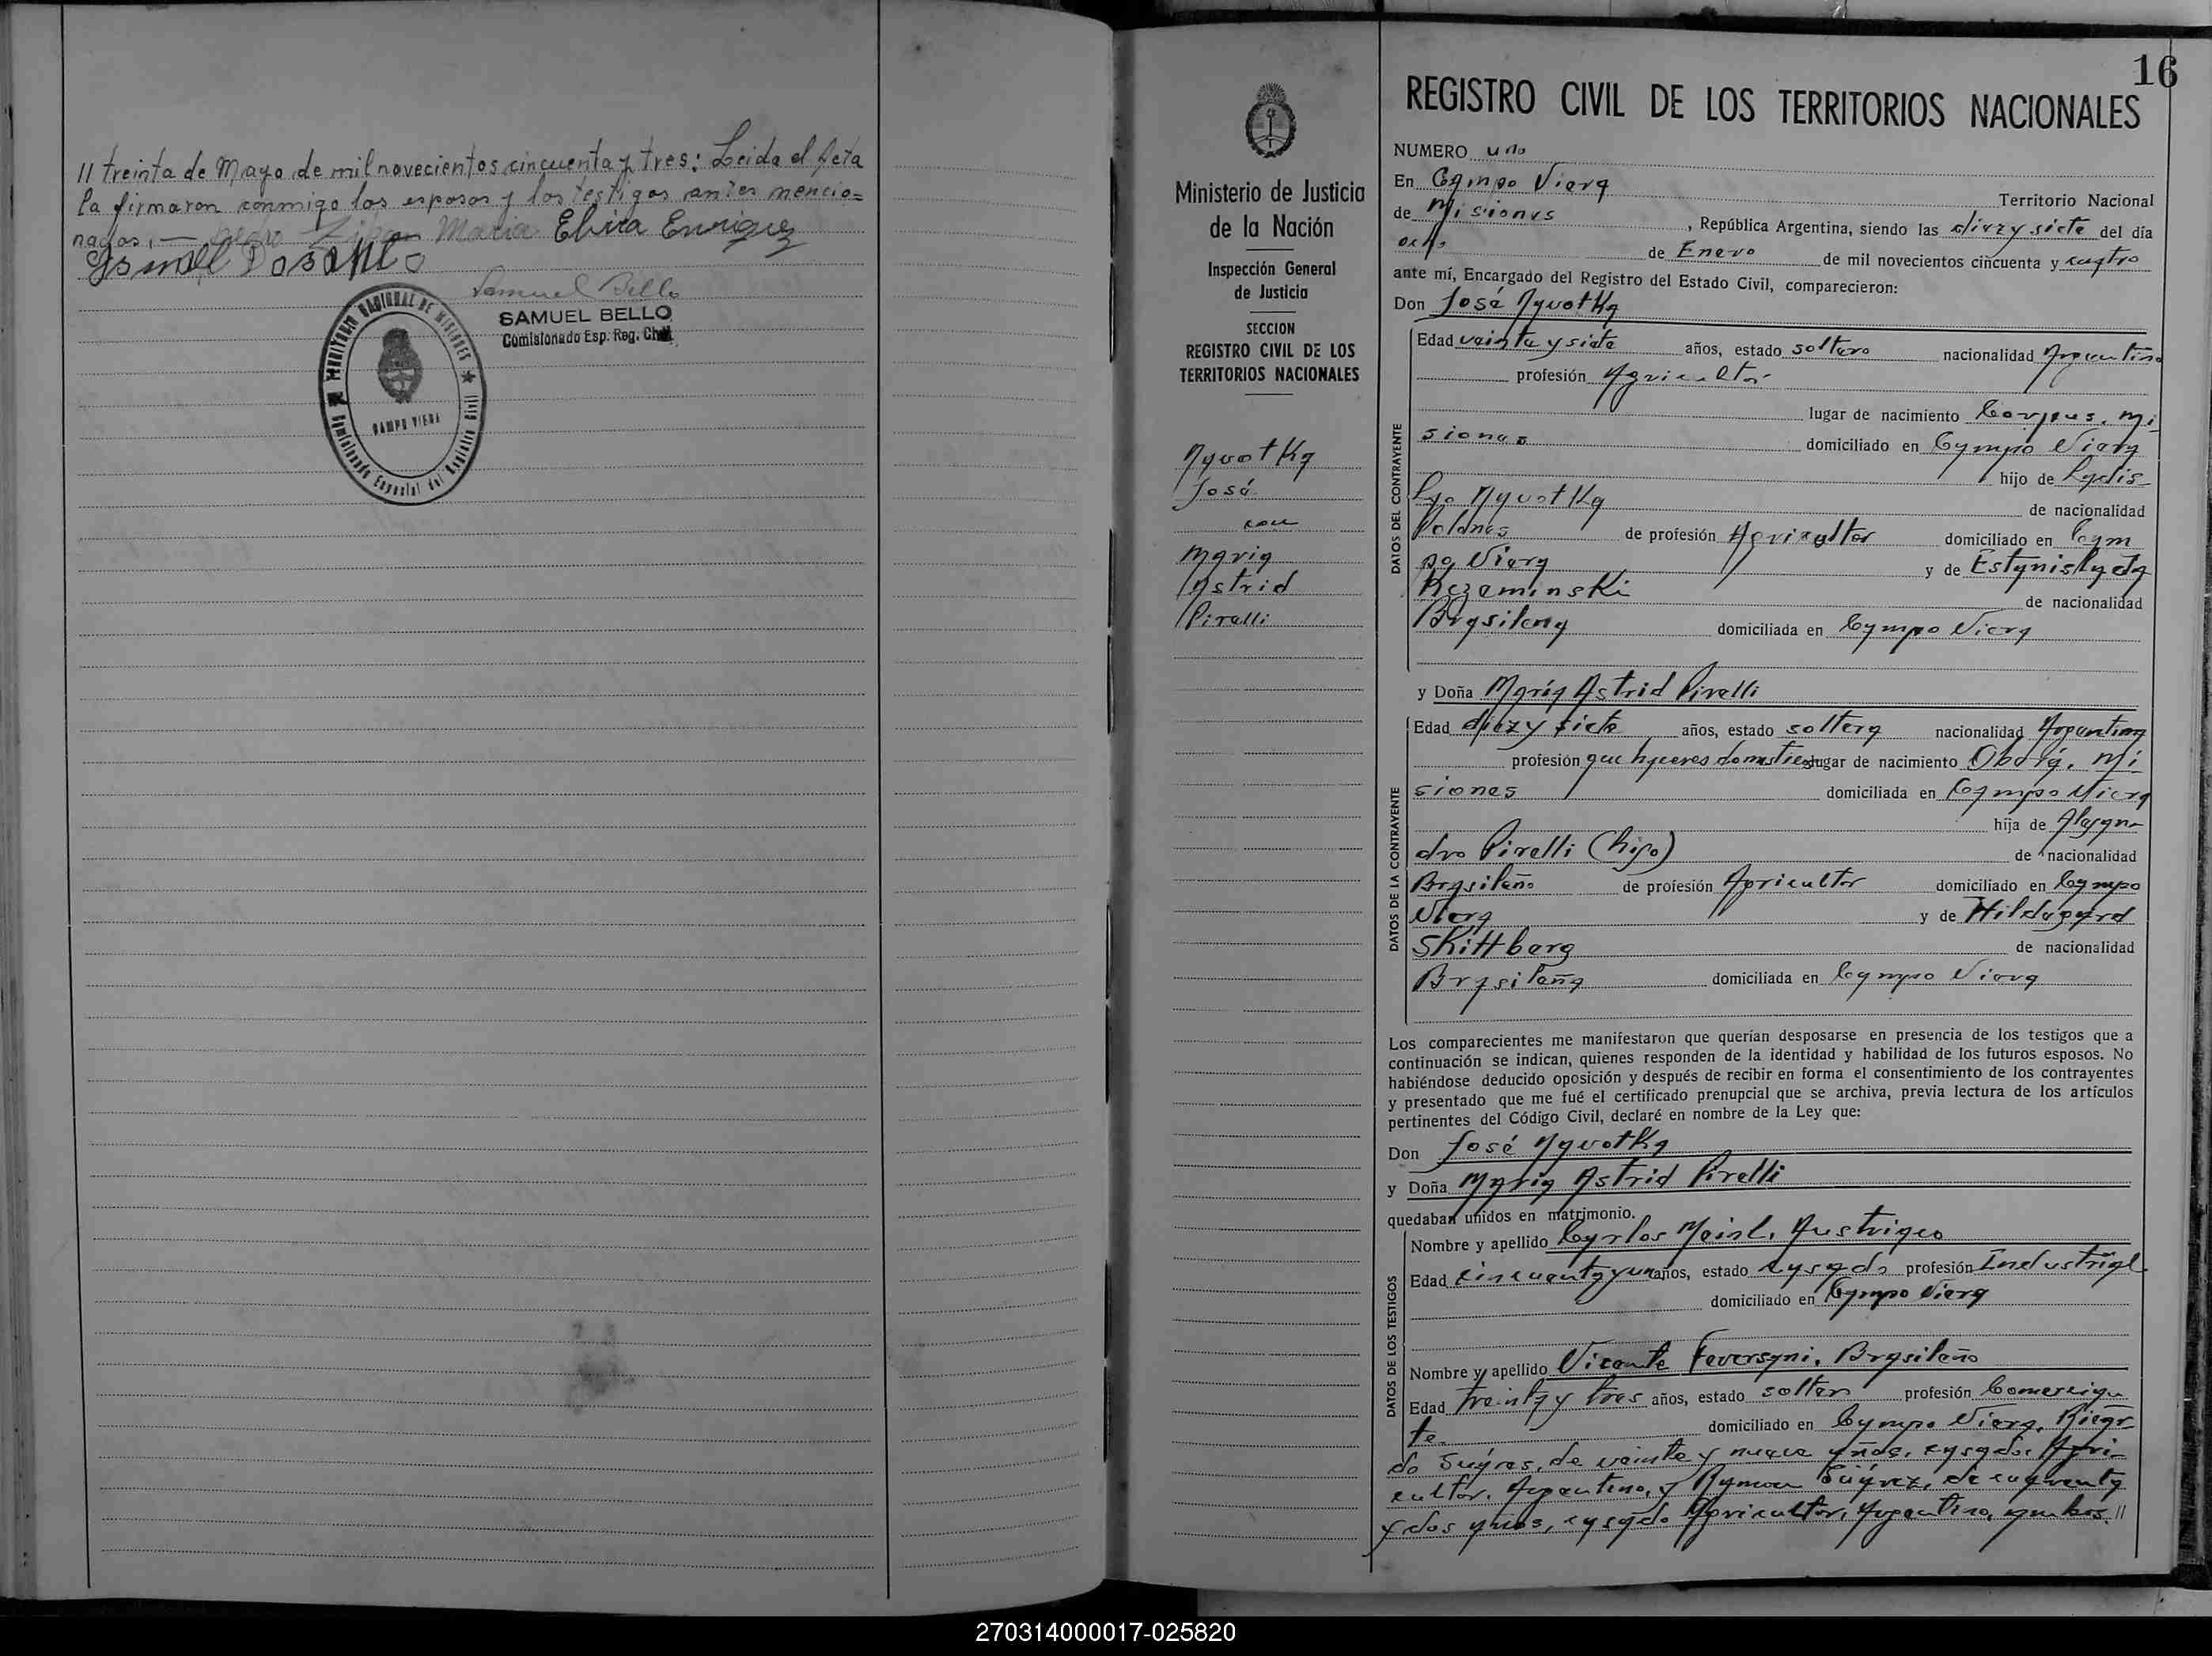 // treinta de Mayo de mil novecientos cincuenta y tres: Leida el Acta
la firmaron conmigo los esposos y los testigos antes mencio=
nados, —
Maria Elvira Enriquez
Samuel Bello
SAMUEL BELLO
Comisionado Esp. Reg. Civil
TERRITORIO NACIONAL DE MISIONES
CAMPO VIERA
Comisionado Especial del Registro Civil
Ministerio de Justicia
de la Nación
Inspección General
de Justicia
SECCION
REGISTRO CIVIL DE LOS
TERRITORIOS NACIONALES
José
con
Maria
Astrid
Pirelli
16
REGISTRO CIVIL DE LOS TERRITORIOS NACIONALES
NUMERO uno
En Campo Viera
Territorio Nacional
de Misiones, República Argentina, siendo las diez y siete del día
ocho de Enero de mil novecientos cincuenta y cuatro
ante mí, Encargado del Registro del Estado Civil, comparecieron:
Don José
DATOS DEL CONTRAYENTE
Edad veinte y siete años, estado soltero nacionalidad Argentino
profesión Agricultor
lugar de nacimiento Corpus, Mi
siones domiciliado en Campo Viera
hijo de Ladis
lao
de nacionalidad
Polones de profesión Agricultor domiciliado en Cam
po Viera y de Estanislada
de nacionalidad
Brasilena domiciliada en Campo Viera
y Doña María Astrid Pirelli
DATOS DE LA CONTRAYENTE
Edad diez y siete años, estado soltera nacionalidad Argentina
profesión que haceres domesticos lugar de nacimiento Oberá, Mi
siones domiciliada en Campo Viera
hija de Alejan-
dro Pirelli (hijo) de nacionalidad
Brasileño de profesión Agricultor domiciliado en Campo
Viera y de Hildegard
Skittberg de nacionalidad
Brasileña domiciliada en Campo Viera
Los comparecientes me manifestaron que querían desposarse en presencia de los testigos que a
continuación se indican, quienes responden de la identidad y habilidad de los futuros esposos. No
habiéndose deducido oposición y después de recibir en forma el consentimiento de los contrayentes
y presentado que me fué el certificado prenupcial que se archiva, previa lectura de los artículos
pertinentes del Código Civil, declaré en nombre de la Ley que:
Don José
y Doña Maria Astrid Pirelli
quedaban unidos en matrimonio.
DATOS DE LOS TESTIGOS
Nombre y apellido Carlos Meisl, Austriaco
Edad cincuenta y un años, estado casado profesión Industrial
domiciliado en Campo Viera
Nombre y apellido Vicente Feversani, Brasileño
Edad treinta y tres años, estado soltero profesión Comercian
te domiciliado en Campo Viera, Ricar
do Suáres, de veinte y nueve años, casado, Agri-
cultor, Argentino, y Ramon Suárez, de cuarenta
y dos años, casado Agricultor, Argentino, ambos, //
270314000017-025820